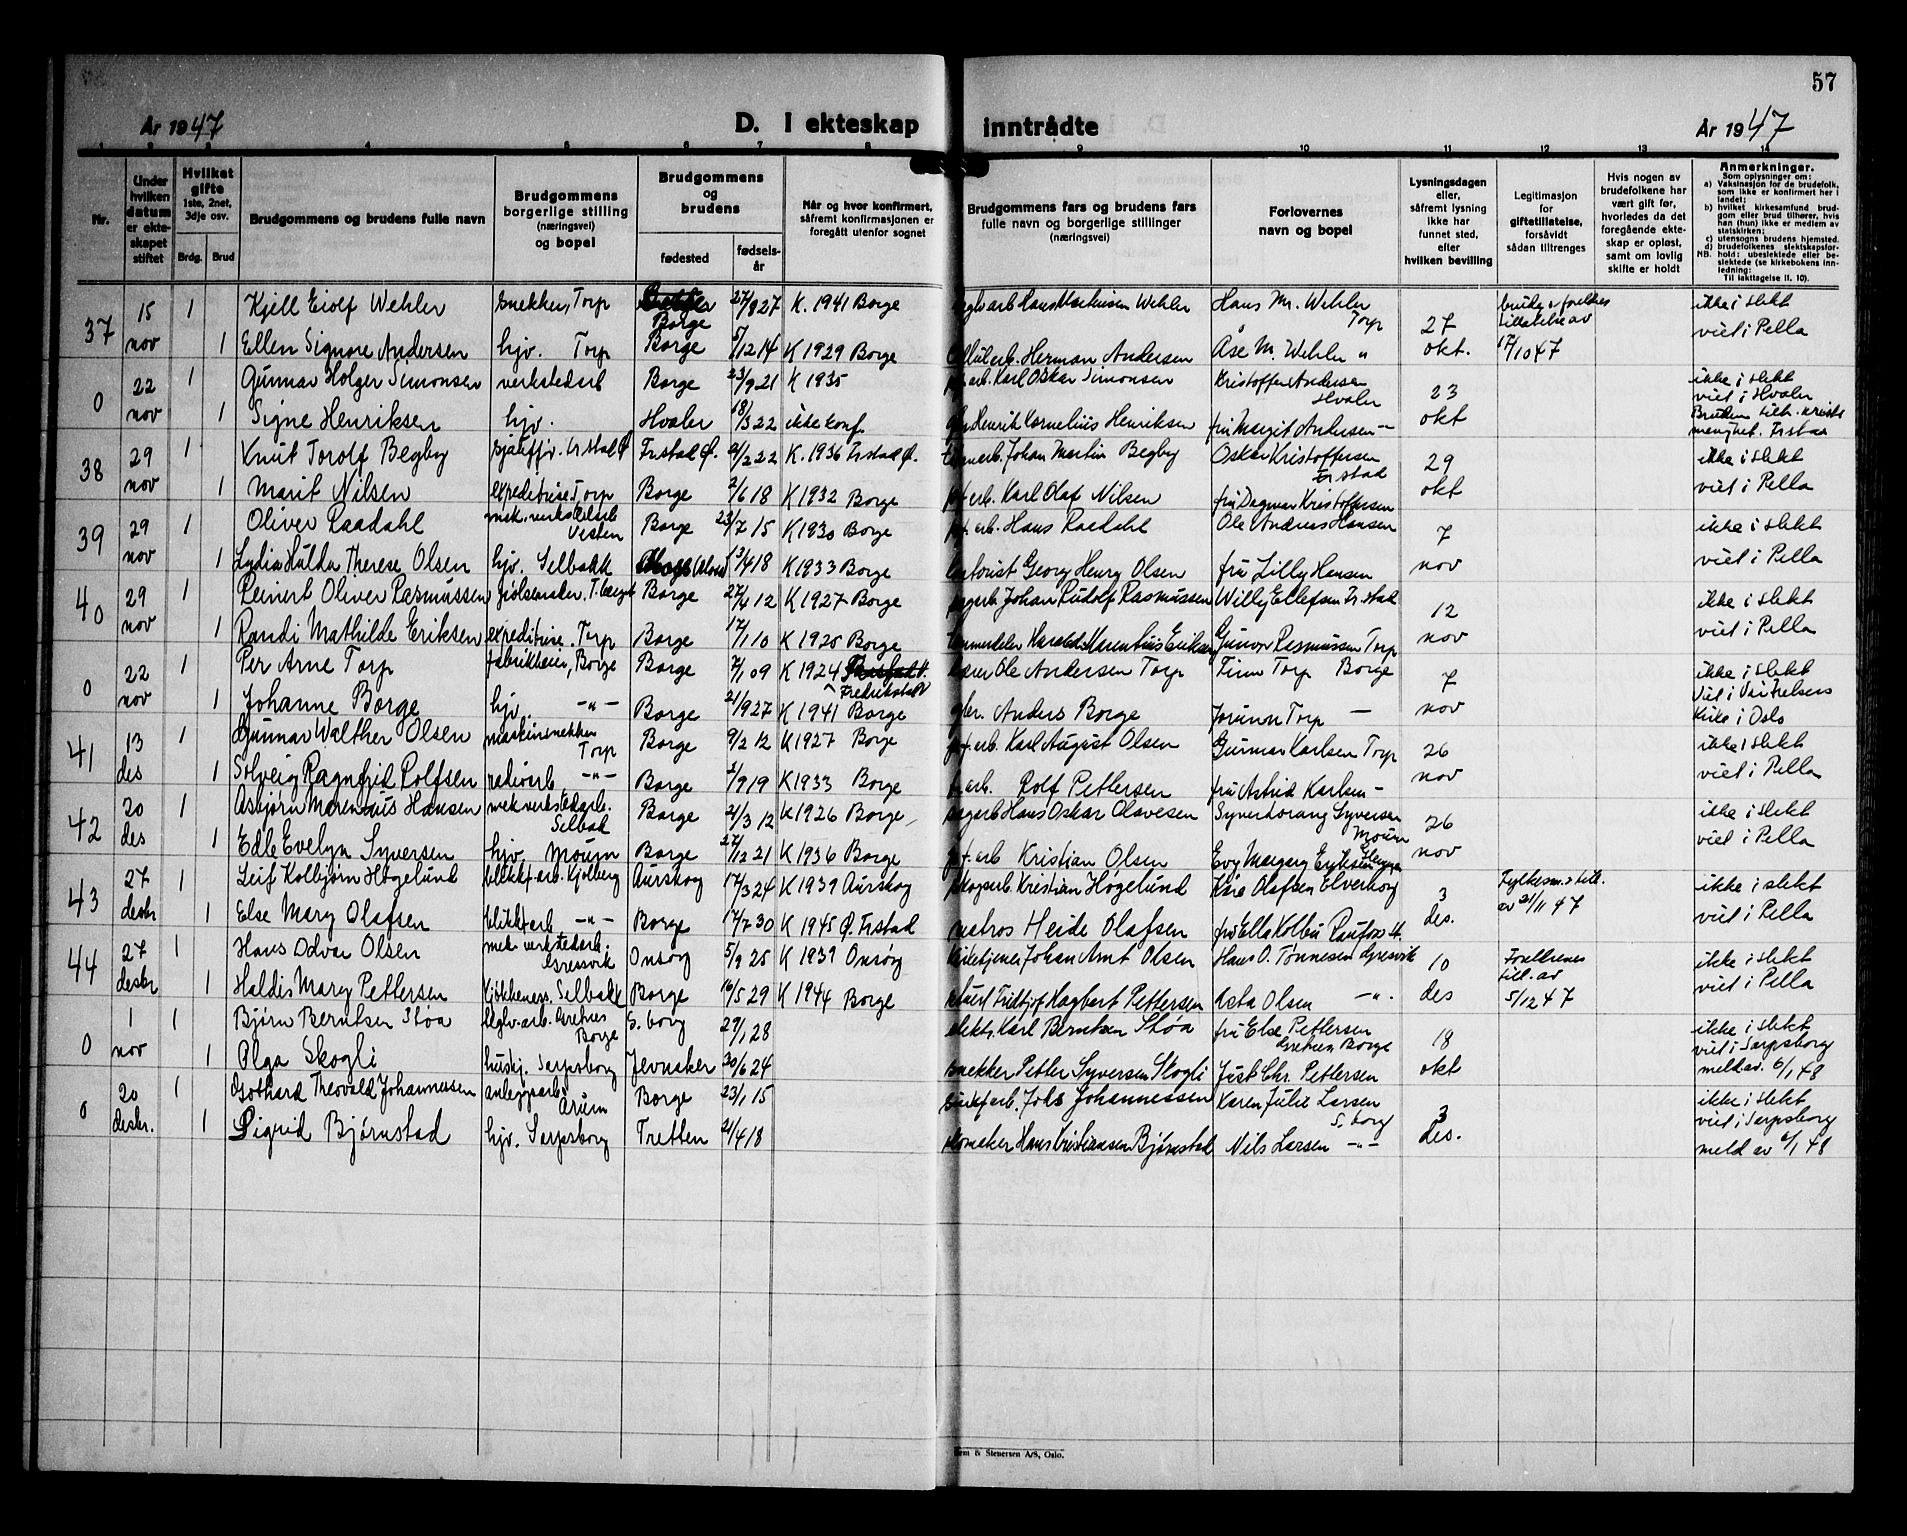 57
År 1947 D. I ekteskap inntrådte År 1947
1 2 3 4 5 6 7 8 9 10 11 12 13 14
Nr.
Under hvilken datum er ekteskapet stiftet
Hvilket gifte 1ste, 2net, 3dje osv.
Brdg. Brud
Brudgommens og brudens fulle navn
Brudgommens borgerlige stilling (næringsvei) og bopel
Brudgommens og brudens
fødested fødselsår
Når og hvor konfirmert, såfremt konfirmasjonen er foregått utenfor sognet
Brudgommens fars og brudens fars fulle navn og borgerlige stillinger (næringsvei)
Forlovernes navn og bopel
Lysningsdagen eller, såfremt lysning ikke har funnet sted, efter hvilken bevilling
Legitimasjon for giftetillatelse, forsåvidt sådan tiltrenges
Hvis nogen av brudefolkene har vært gift før, hvorledes da det foregående ekteskap er opløst, samt om lovlig skifte er holdt
Anmerkninger.
Som oplysninger om:
a) Vaksinasjon for de brudefolk, som ikke er konfirmert her i landet;
b) hvilket kirkesamfund brudgom eller brud tilhører, hvis han (hun) ikke er medlem av statskirken;
c) utensogns brudens hjemsted.
d) brudefolkenes slektskapsforhold: ubeslektede eller beslektede (se kirkebokens innledning:
NB. Til iakttagelse II. 10).
37 15 nov 1 Kjell Eiolf Wehler snekker, Torp Borge 27/8 27 K. 1941 Borge arb Hans Markusen Wehler Hans M. Wehler Torp 27 okt. tillatelse av 17/10 47 ikke i slekt viet i Pella
1 Ellen Signore Andersen hjv. Torp Borge 5/12 14 K 1929 Borge Herman Andersen Åse M. Wehler "
0 22 nov 1 Gunnar Holger Simonsen verkstedarb Borge 23/9 21 K 1935 arb. Karl Oskar Simonsen Kristoffer Andersen Hvaler 23 okt ikke i slekt viet i Hvaler
1 Signe Henriksen hjv. Hvaler 18/3 22 ikke konf. Henrik Kornelius Henriksen fru Margit Andersen - Bruden tilh. Krists menighet. Frstad
38 29 nov 1 Knut Torolf Begby Frstad Ø. 9/2 22 K. 1936 Frstad Ø. Johan Martin Begby Oskar Kristoffersen Frstad 29 okt ikke i slekt viet i Pella
1 Marit Nilsen expeditrise. Torp Borge 2/6 18 K 1932 Borge arb. Karl Olaf Nilsen fru Dagmar Kristoffersen
39 29 nov 1 Oliver Raadahl mek. verkstedarb Vesten Borge 23/7 15 K 1930 Borge arb. Hans Raadahl Ole Andreas Hansen 7 nov ikke i slekt viet i Pella
1 Lydia Hulda Therese Olsen hjv. Selbakk 13/4 18 K 1933 Borge Georg Henry Olsen fru Lilly Hansen
40 29 nov 1 Reinert Oliver Rasmussen Borge 27/4 12 K 1927 Borge Johan Rudolf Rasmussen Willy Ellefsen Fr.stad 12 nov ikke i slekt viet i Pella
1 Randi Mathilde Eriksen expeditrise. Torp Borge 17/1 10 K 1925 Borge Harald Marentius Eriksen Gunvor Rasmussen Torp
0 22 nov 1 Per Arne Torp Borge Borge 7/1 09 K 1924 Fredrikstad V Ole Andersen Torp Finn Torp Borge 7 nov ikke i slekt
1 Johanne Borge hjv -"- Borge 21/9 27 K 1941 Borge gbr. Anders Borge Jorunn Torp - Kirke i Oslo
41 13 des 1 Gunnar Walther Olsen maskinsnekker Torp Borge 9/2 12 K 1927 Borge arb. Karl August Olsen Gunnar Karlsen Torp 26 nov ikke i slekt viet i Pella
1 Solveig Ragnfrid Rolfsen -"- Borge 2/9 19 K 1933 Borge arb. Rolf Pettersen fru Astrid Karlsen -
42 20 des 1 Asbjørn Marenius Hansen mek verkstedarb. Selbak Borge 21/3 12 K 1926 Borge Hans Oskar Olavesen Syver Moum 26 nov ikke i slekt viet i Pella
1 Edle Evelyn Syversen hjv. Moum Borge 27/12 21 K 1936 Borge arb Kristian Olsen
43 27 desbr 1 Leif Kolbjørn Høgelund blikkf arb. Kjølberg Aurskog 17/3 24 K 1939 Aurskog Skogsarb. Kristian Høgelund Kåre Olafsen Elverhøy 3 des. Fylkesm.s till. av 21/11 47 ikke i slekt viet i Pella
1 Else Mary Olafsen -"- Borge 17/7 30 K 1945 Ø. Frstad matros Heide Olafsen fru Ella Kolbu Raufoss
44 27 desbr 1 Hans Odvar Olsen mek verkstedarb. Gressvik Onsøy 5/9 25 K 1939 Onsøy Johan Arnt Olsen Hans O. Tønnesen Gressvik 10 des Foreldrenes till. av 5/12 47 ikke i slekt viet i Pella
1 Haldis Mary Pettersen Selbakk Borge 16/5 29 K 1944 Borge Fridtjof Hagbart Pettersen Asta Olsen -"-
0 1 nov 1 Bjørn Berntsen Støa Borge S. borg 29/1 28 elektr. Karl Berntsen Støa fru Else Pettersen Borge 18 okt ikke i slekt viet i Sarpsborg meld av. 6/1 48
1 Olga Skogli hushj. Sarpsborg Jevnaker 30/6 24 snekker Petter Syversen Skogli Just Chr. Pettersen
0 20 desbr. 1 Gothard Theovald Johannessen anleggsarb Årum Borge 23/1 15 Johs Johannessen Karen Julie Larsen S. borg 3 des. ikke i slekt viet i Sarpsborg meld av 6/1 48
1 Sigrid Bjørnstad hjv. Sarpsborg Tretten 21/4 18 Hans Kristiansen Bjørnstad Nils Larsen -"-
& Stenersen A/S, Oslo.